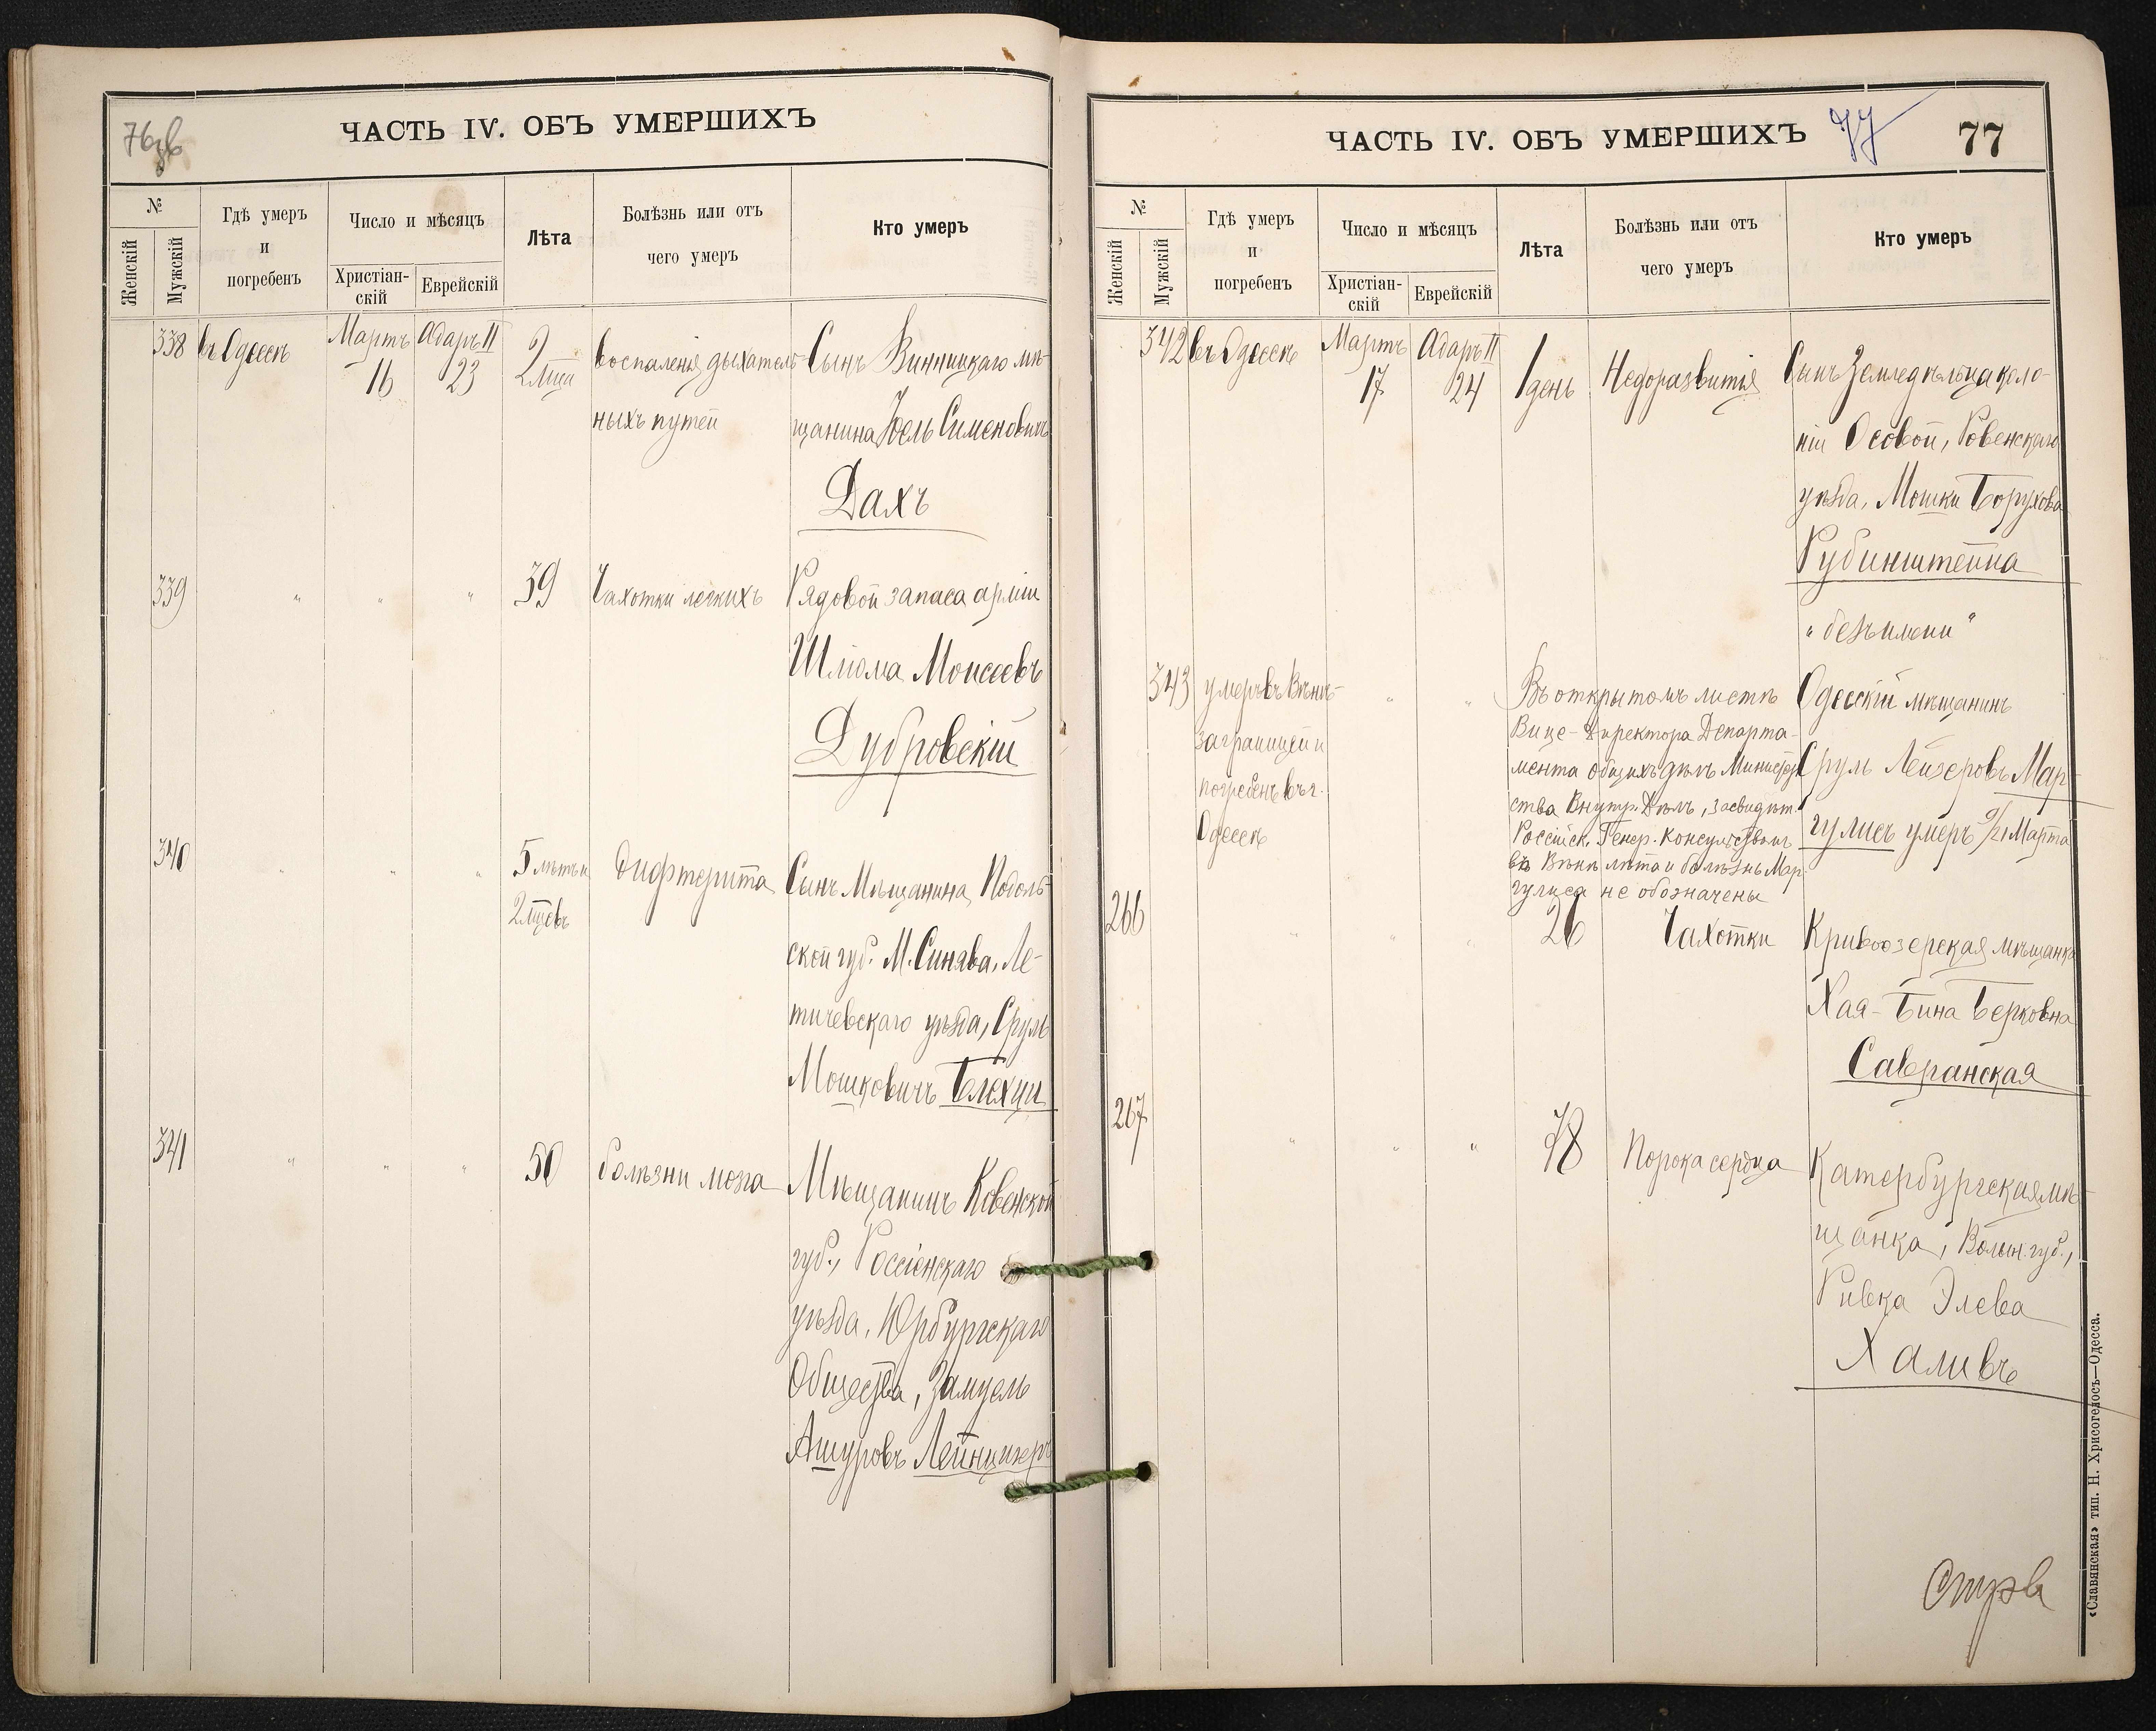 76об
ЧАСТЬ IV. ОБЪ УМЕРШИХЪ
№
Женскій
Мужскій
Гдѣ умеръ
и
погребенъ
Число и мѣсяцъ
Христіан-
скій
Еврейскій
Лѣта
Болѣзнь или отъ
чего умеръ
Кто умеръ
338 въ Одессѣ Мартъ Адаръ II 2 воспаленія дыхатель- Сынъ Винницкаго мѣ-
16 23 2 мца
ныхъ путей щанина Юель Сименовичъ
Дахъ
339 " " " 39 Чахотки легкихъ Рядовой запаса арміи
Шліома Моисеевъ
Дубровскій
340 " " " 5 лѣтъ и Дифтерита Сынъ Мѣщанина, Подоль-
2 мцевъ
ской губ. М. Синява, Ле-
тичевскаго уѣзда, Сруль
Мошковичъ Блехци
341 " " " 50 болѣзни мозга Мѣщанинъ Ковенской
губ., Россіенскаго
уѣзда, Юрбургскаго
Общества, Замуель
Ашуровъ Лейнцигеръ
ЧАСТЬ IV. ОБЪ УМЕРШИХЪ 77 77
№
Женскій
Мужскій
Гдѣ умеръ
и
погребенъ
Число и мѣсяцъ
Христіан-
скій
Еврейскій
Лѣта
Болѣзнь или отъ
чего умеръ
Кто умеръ
342 въ Одессѣ Мартъ Адаръ II 1 Недоразвитія Сынъ Земледѣльца коло-
17 24 день
ніи Осовой, Ровенскаго
уѣзда, Мошки Борухова
Рубинштейна
"безъ имени"
343 умеръ въ Вѣнѣ " " Въ открытомъ листѣ Одесскій мѣщанинъ
заграницей и Вице-Директора Департа-
мента общихъ дѣлъ Министер- Сруль Лейзеровъ Мар-
погребенъ въ г. ства Внутр. Дѣлъ, засвидѣт.
Одессѣ Россійск. Генер. Консульствомъ гулисъ умеръ 9/21 Марта
въ Вѣнѣ лѣта и болѣзнь Мар-
гулиса не обозначены
266 " " " 26 Чахотки Кривоозерская мѣщанка
Хая-Бина Берковна
Савранская
267 " " " 78 Порока сердца Катербургская мѣ-
щанка, Волын. губ.,
Ривка Элева
Халивъ
«Славянская» тип. Н. Хрисогелосъ—Одесса.